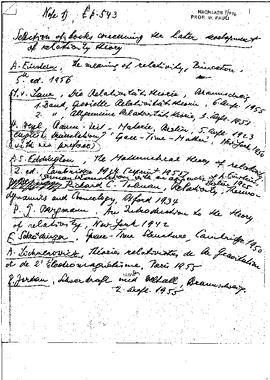 NACHLASS
PROF. W. PAULI
Selection of books concerning the later development
of relativity theory
A. Einstein, The meaning of relativity, Princeton,
5th ed. 1956
M. v. Laue, Die Relativitätstheorie, Braunschweig
1. Band, Spezielle Relativitätstheorie, 6. Aufl. 1955
2. " Allgemeine Relativitätstheorie, 3. Aufl. 1953
H. Weyl, Raum - Zeit - Materie, Berlin, 5. Aufl. 1923
Space-Time-Matter, New York 1950
(with new preface)
A. S. Eddington, The Mathematical theory of relativity
2. ed., Cambridge 1924
Richard C. Tolman, Relativity, Thermo-
dynamics and Cosmology, Oxford 1934
P. G. Bergmann, An Introduction to the theory
of relativity, New York 1942
E. Schrödinger, Space-Time Structure, Cambridge 1950
A. Lichnerowicz, Théories relativistes de la Gravitation
et de l'Electromagnétisme, Paris 1955
P. Jordan, Schwerkraft und Weltall, Braunschweig,
2. Aufl. 1955